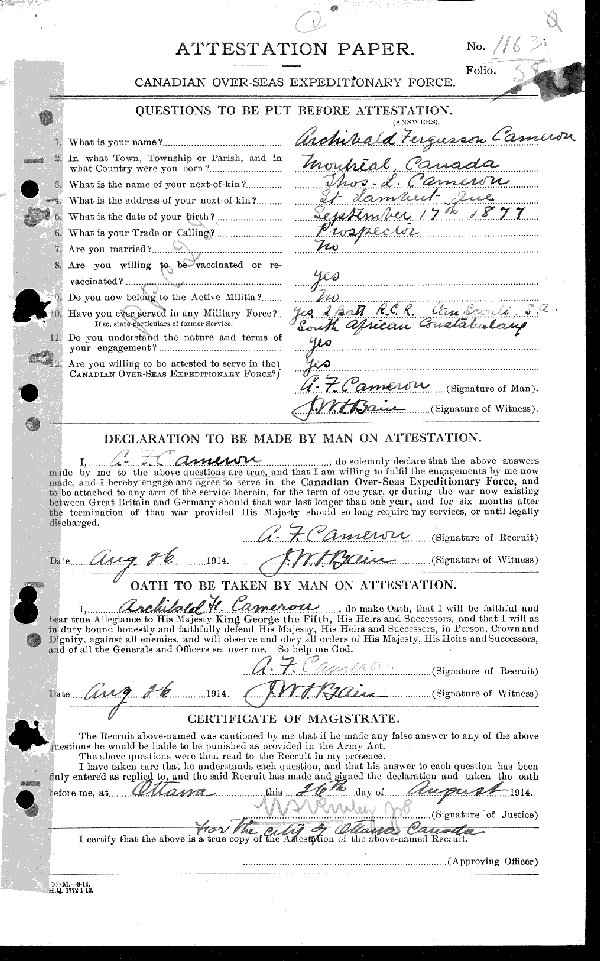 ATTESTATION PAPER.
No. 1163
Folio.
CANADIAN OVER-SEAS EXPEDITIONARY FORCE.
QUESTIONS TO BE PUT BEFORE ATTESTATION.
(ANSWERS).
1. What is your name? Archibald Fergusson Cameron
2. In what Town, Township or Parish, and in
what Country were you born? Montreal, Canada
3. What is the name of your next-of-kin? Thos. L. Cameron
4. What is the address of your next-of-kin? St Lambert Que
5. What is the date of your birth? September 17th 1877
6. What is your Trade or Calling? Prospector
7. Are you married? No
8. Are you willing to be vaccinated or re-
vaccinated? yes
9. Do you now belong to the Active Militia? No
10. Have you ever served in any Military Force? yes 2 Batt R.C.R. S.A.
If so, state particulars of former Service. South African Constabulary
11. Do you understand the nature and terms of
your engagement? yes
12. Are you willing to be attested to serve in the
CANADIAN OVER-SEAS EXPEDITIONARY FORCE? yes
A. F. Cameron (Signature of Man).
J.W.S. Bain (Signature of Witness).
DECLARATION TO BE MADE BY MAN ON ATTESTATION.
I, A F Cameron, do solemnly declare that the above answers
made by me to the above questions are true, and that I am willing to fulfil the engagements by me now
made, and I hereby engage and agree to serve in the Canadian Over-Seas Expeditionary Force, and
to be attached to any arm of the service therein, for the term of one year, or during the war now existing
between Great Britain and Germany should that war last longer than one year, and for six months after
the termination of that war provided His Majesty should so long require my services, or until legally
discharged.
A. F. Cameron (Signature of Recruit)
Date Aug 26 1914. J.W.S. Bain (Signature of Witness)
OATH TO BE TAKEN BY MAN ON ATTESTATION.
I, Archibald F. Cameron, do make Oath, that I will be faithful and
bear true Allegiance to His Majesty King George the Fifth, His Heirs and Successors, and that I will as
in duty bound honestly and faithfully defend His Majesty, His Heirs and Successors, in Person, Crown and
Dignity, against all enemies, and will observe and obey all orders of His Majesty, His Heirs and Successors,
and of all the Generals and Officers set over me. So help me God.
A. F. Cameron (Signature of Recruit)
Date Aug 26 1914. J.W.S. Bain (Signature of Witness)
CERTIFICATE OF MAGISTRATE.
The Recruit above-named was cautioned by me that if he made any false answer to any of the above
questions he would be liable to be punished as provided in the Army Act.
The above questions were then read to the Recruit in my presence.
I have taken care that he understands each question, and that his answer to each question has been
duly entered as replied to, and the said Recruit has made and signed the declaration and taken the oath
before me, at Ottawa this 26th day of August 1914.
(Signature of Justice)
For the City of Ottawa Canada
I certify that the above is a true copy of the Attestation of the above-named Recruit.
(Approving Officer)
H.Q. 1772-1-13.